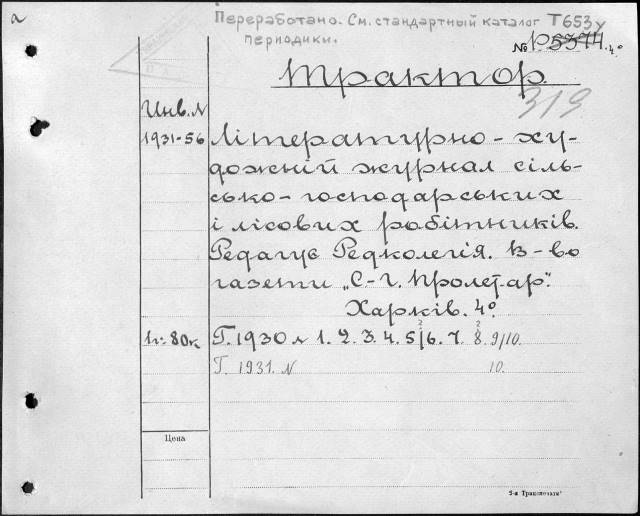 а
Переработано. См. стандартный каталог Т653у
периодики.
№ Р5374. 4°
Трактор.
319
Инв. №
1931-56
Літературно-ху-
дожній журнал сіль-
сько-господарських
і лісових робітників.
Редагує Редколегія. В-во
газети „С-Г. Пролет-ар".
Харків. 4°.
1к: 80к
Г. 1930 № 1. 2. 3. 4. 5/6. 7. 8. 9/10.
Г. 1931. № 10.
Цена
5-я Транспечати